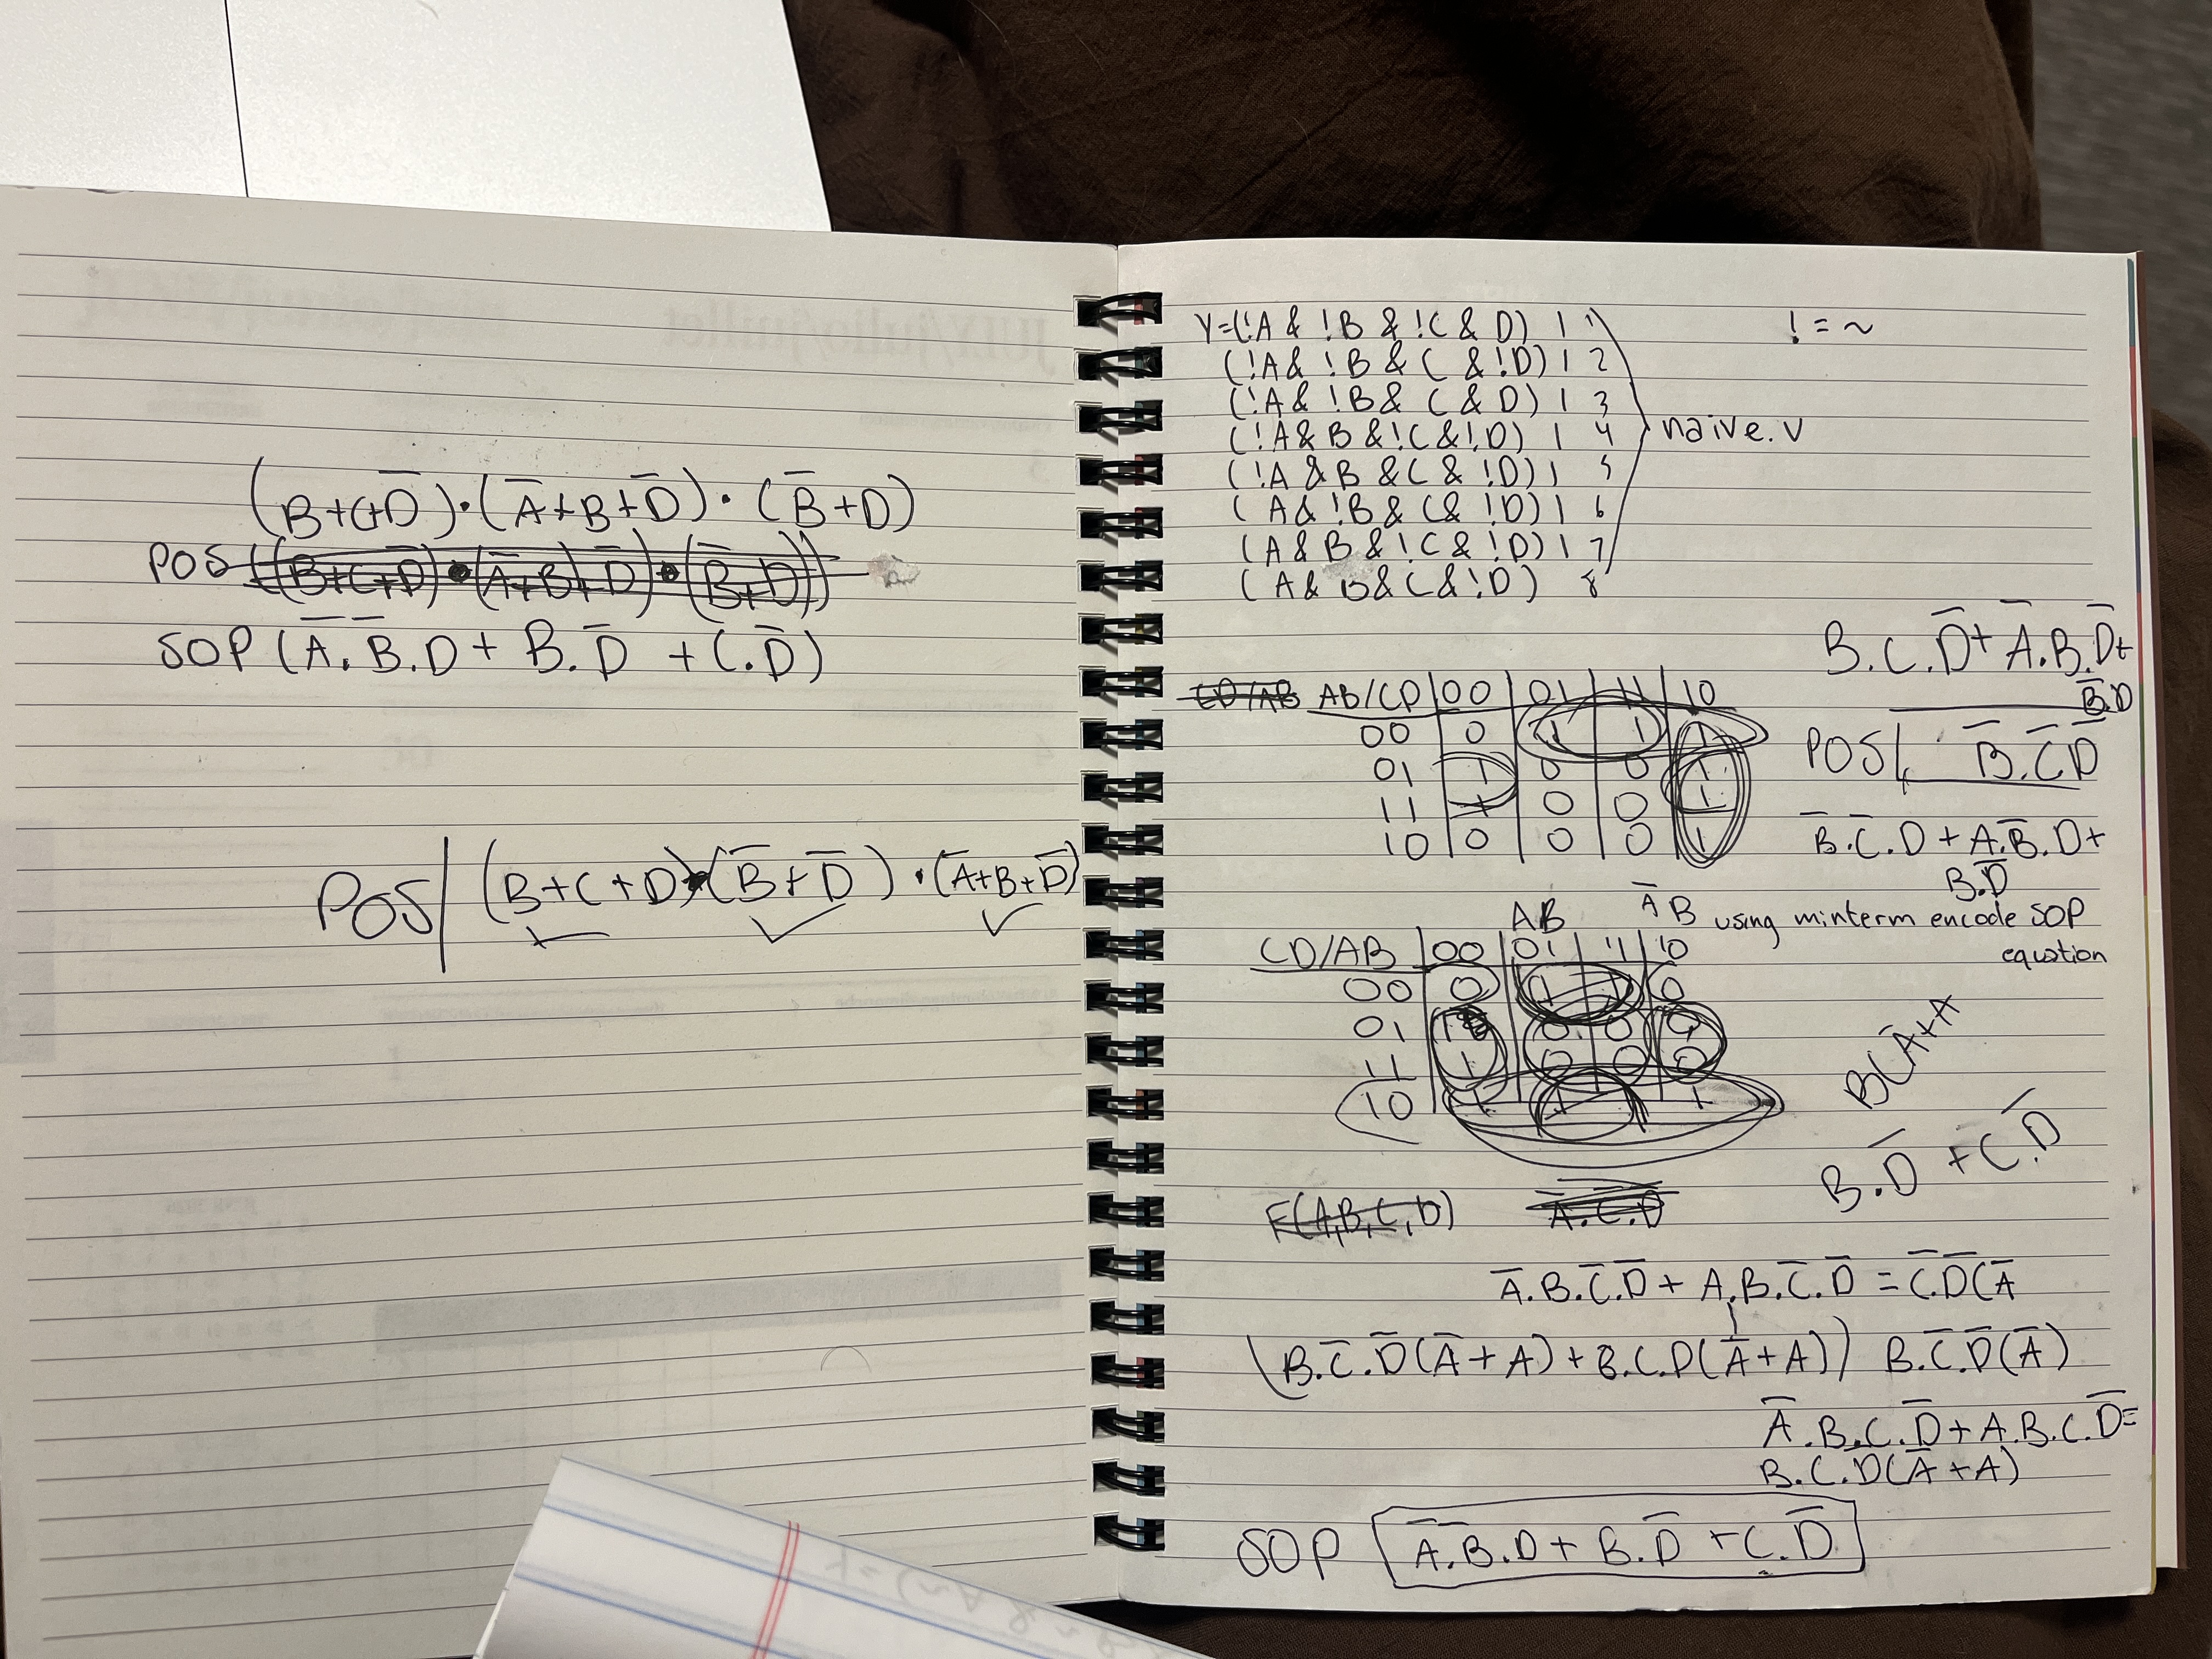 (B+C+D̅)·(A̅+B+D̅)·(B̅+D)
POS
SOP (A̅.B̅.D + B.D̅ + C.D̅)
POS | (B+C+D)·(B̅+D̅)·(A̅+B+D̅)
Y=(!A & !B & !C & D) | 1
(!A & !B & C & !D) | 2
(!A & !B & C & D) | 3
(!A & B & !C & !D) | 4
(!A & B & C & !D) | 5
(A & !B & C & !D) | 6
(A & B & !C & !D) | 7
(A & B & C & !D) 8
naive.v
! = ~
B.C.D̅+A̅.B̅.D+
B.D̅
CD/AB AB/CD 00 01 11 10
00 0 1 1 1
01 1 0 0 1
11 1 0 0 1
10 0 0 0 1
POS | B̅.C̅.D
B̅.C.D + A.B̅.D+
B.D̅
AB A̅B using minterm encode SOP
equation
CD/AB 00 01 11 10
00 0 1 1 0
01 1 0 0 0
11 1 0 0 0
10 1 1 1 1
B(A̅+A
F(A,B,C,D)
A̅.C.D
B.D̅ + C.D̅
A̅.B.C̅.D̅ + A.B.C̅.D̅ = C̅.D̅(A̅
(B.C̅.D̅(A̅+A)+B.C.D(A̅+A)) B.C̅.D̅(A̅)
A̅.B.C̅.D̅+A.B.C̅.D̅=
B.C̅.D̅(A̅+A)
SOP A̅.B̅.D + B.D̅ + C.D̅